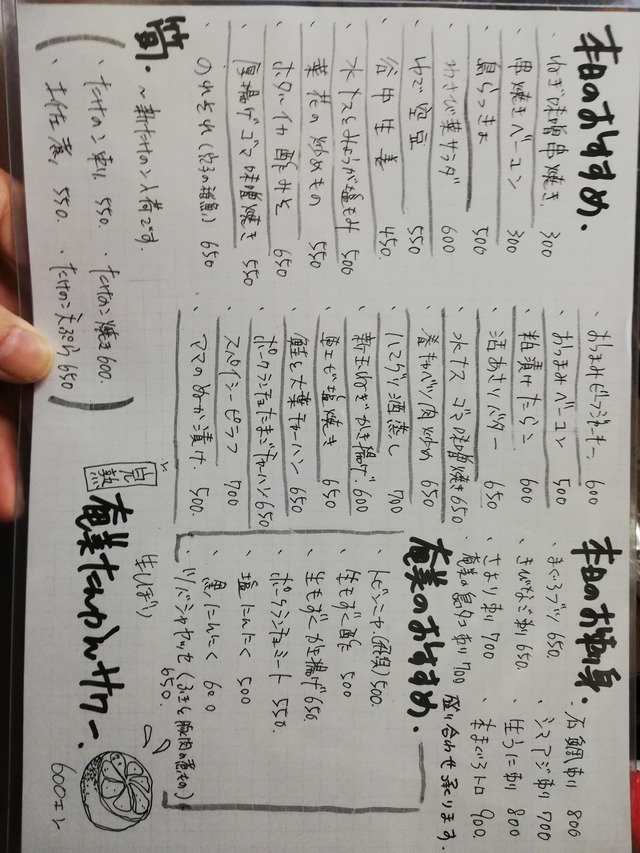 本日のおすすめ.
・ねぎ味噌串焼き 300
・串焼きベーコン 300
・島らっきょ 500
・わさび菜サラダ 600
・ゆで空豆 550
・谷中生姜 450.
・水ナスとみょうが塩もみ 500
・菜花の炒めもの 550
・ホタルイカ酢みそ 650
・厚揚げゴマ味噌焼き 550
・のれそれ(穴子の稚魚) 650
筍.
~新たけのこ入荷です.
・たけのこ刺し 550.
・たけのこ焼き 600.
・土佐煮 550.
・たけのこ天ぷら 650
・おつまみビーフジャーキー 600
・おつまみベーコン 500
・粕漬けたらこ 600
・活あさりバター 650
・水ナスゴマ味噌焼き 650
・春キャベツ肉炒め 650
・ハマグリ酒蒸し 700
・新玉ねぎかき揚げ. 600
・車エビ塩焼き 650
・鮭と大葉チャーハン 650
・ポークランチョンたまごチャーハン 650
・スパイシーピラフ 700
・ママのぬか漬け. 500.
完熟
奄美たんかんサワー.
生しぼり
600エン
本日のお刺身.
・まぐろブツ 650.
・きびなご刺 650.
・さより刺 700
・奄美の島タコ刺 700
・石鯛刺 800
・シマアジ刺 700
・生うに刺 800
・本まぐろトロ 900.
盛り合わせ承ります.
奄美のおすすめ.
・トビンニャ(貝) 500.
・生もずく酢 500
・生もずくかき揚げ 650.
・ポークランチョンミート 550.
・塩にんにく 500
・黒にんにく 600
・ツバシャヤッセ(ふきと豚肉の煮もの) 650.